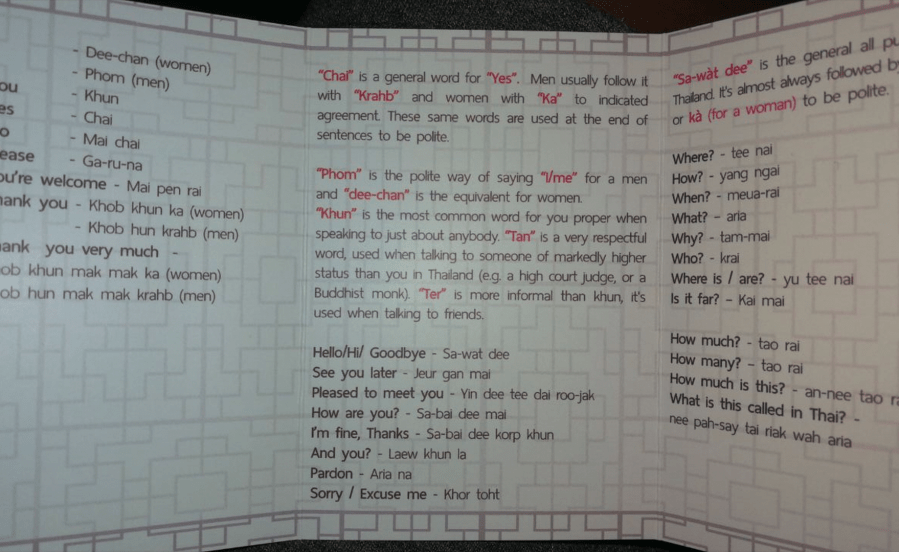 - Dee-chan (women)
- Phom (men)
- Khun
- Chai
- Mai chai
- Ga-ru-na
welcome - Mai pen rai
you - Khob khun ka (women)
- Khob hun krahb (men)
you very much -
khun mak mak ka (women)
hun mak mak krahb (men)
"Chai" is a general word for "Yes". Men usually follow it
with "Krahb" and women with "Ka" to indicated
agreement. These same words are used at the end of
sentences to be polite.
"Phom" is the polite way of saying "I/me" for a men
and "dee-chan" is the equivalent for women.
"Khun" is the most common word for you proper when
speaking to just about anybody. "Tan" is a very respectful
word, used when talking to someone of markedly higher
status than you in Thailand (e.g. a high court judge, or a
Buddhist monk). "Ter" is more informal than khun, it's
used when talking to friends.
Hello/Hi/ Goodbye - Sa-wat dee
See you later - Jeur gan mai
Pleased to meet you - Yin dee tee dai roo-jak
How are you? - Sa-bai dee mai
I'm fine, Thanks - Sa-bai dee korp khun
And you? - Laew khun la
Pardon - Aria na
Sorry / Excuse me - Khor toht
"Sa-wàt dee" is the general all
Thailand. It's almost always followed
or kà (for a woman) to be polite.
Where? - tee nai
How? - yang ngai
When? - meua-rai
What? - aria
Why? - tam-mai
Who? - krai
Where is / are? - yu tee nai
Is it far? - Kai mai
How much? - tao rai
How many? - tao rai
How much is this? - an-nee tao
What is this called in Thai? -
nee pah-say tai riak wah aria